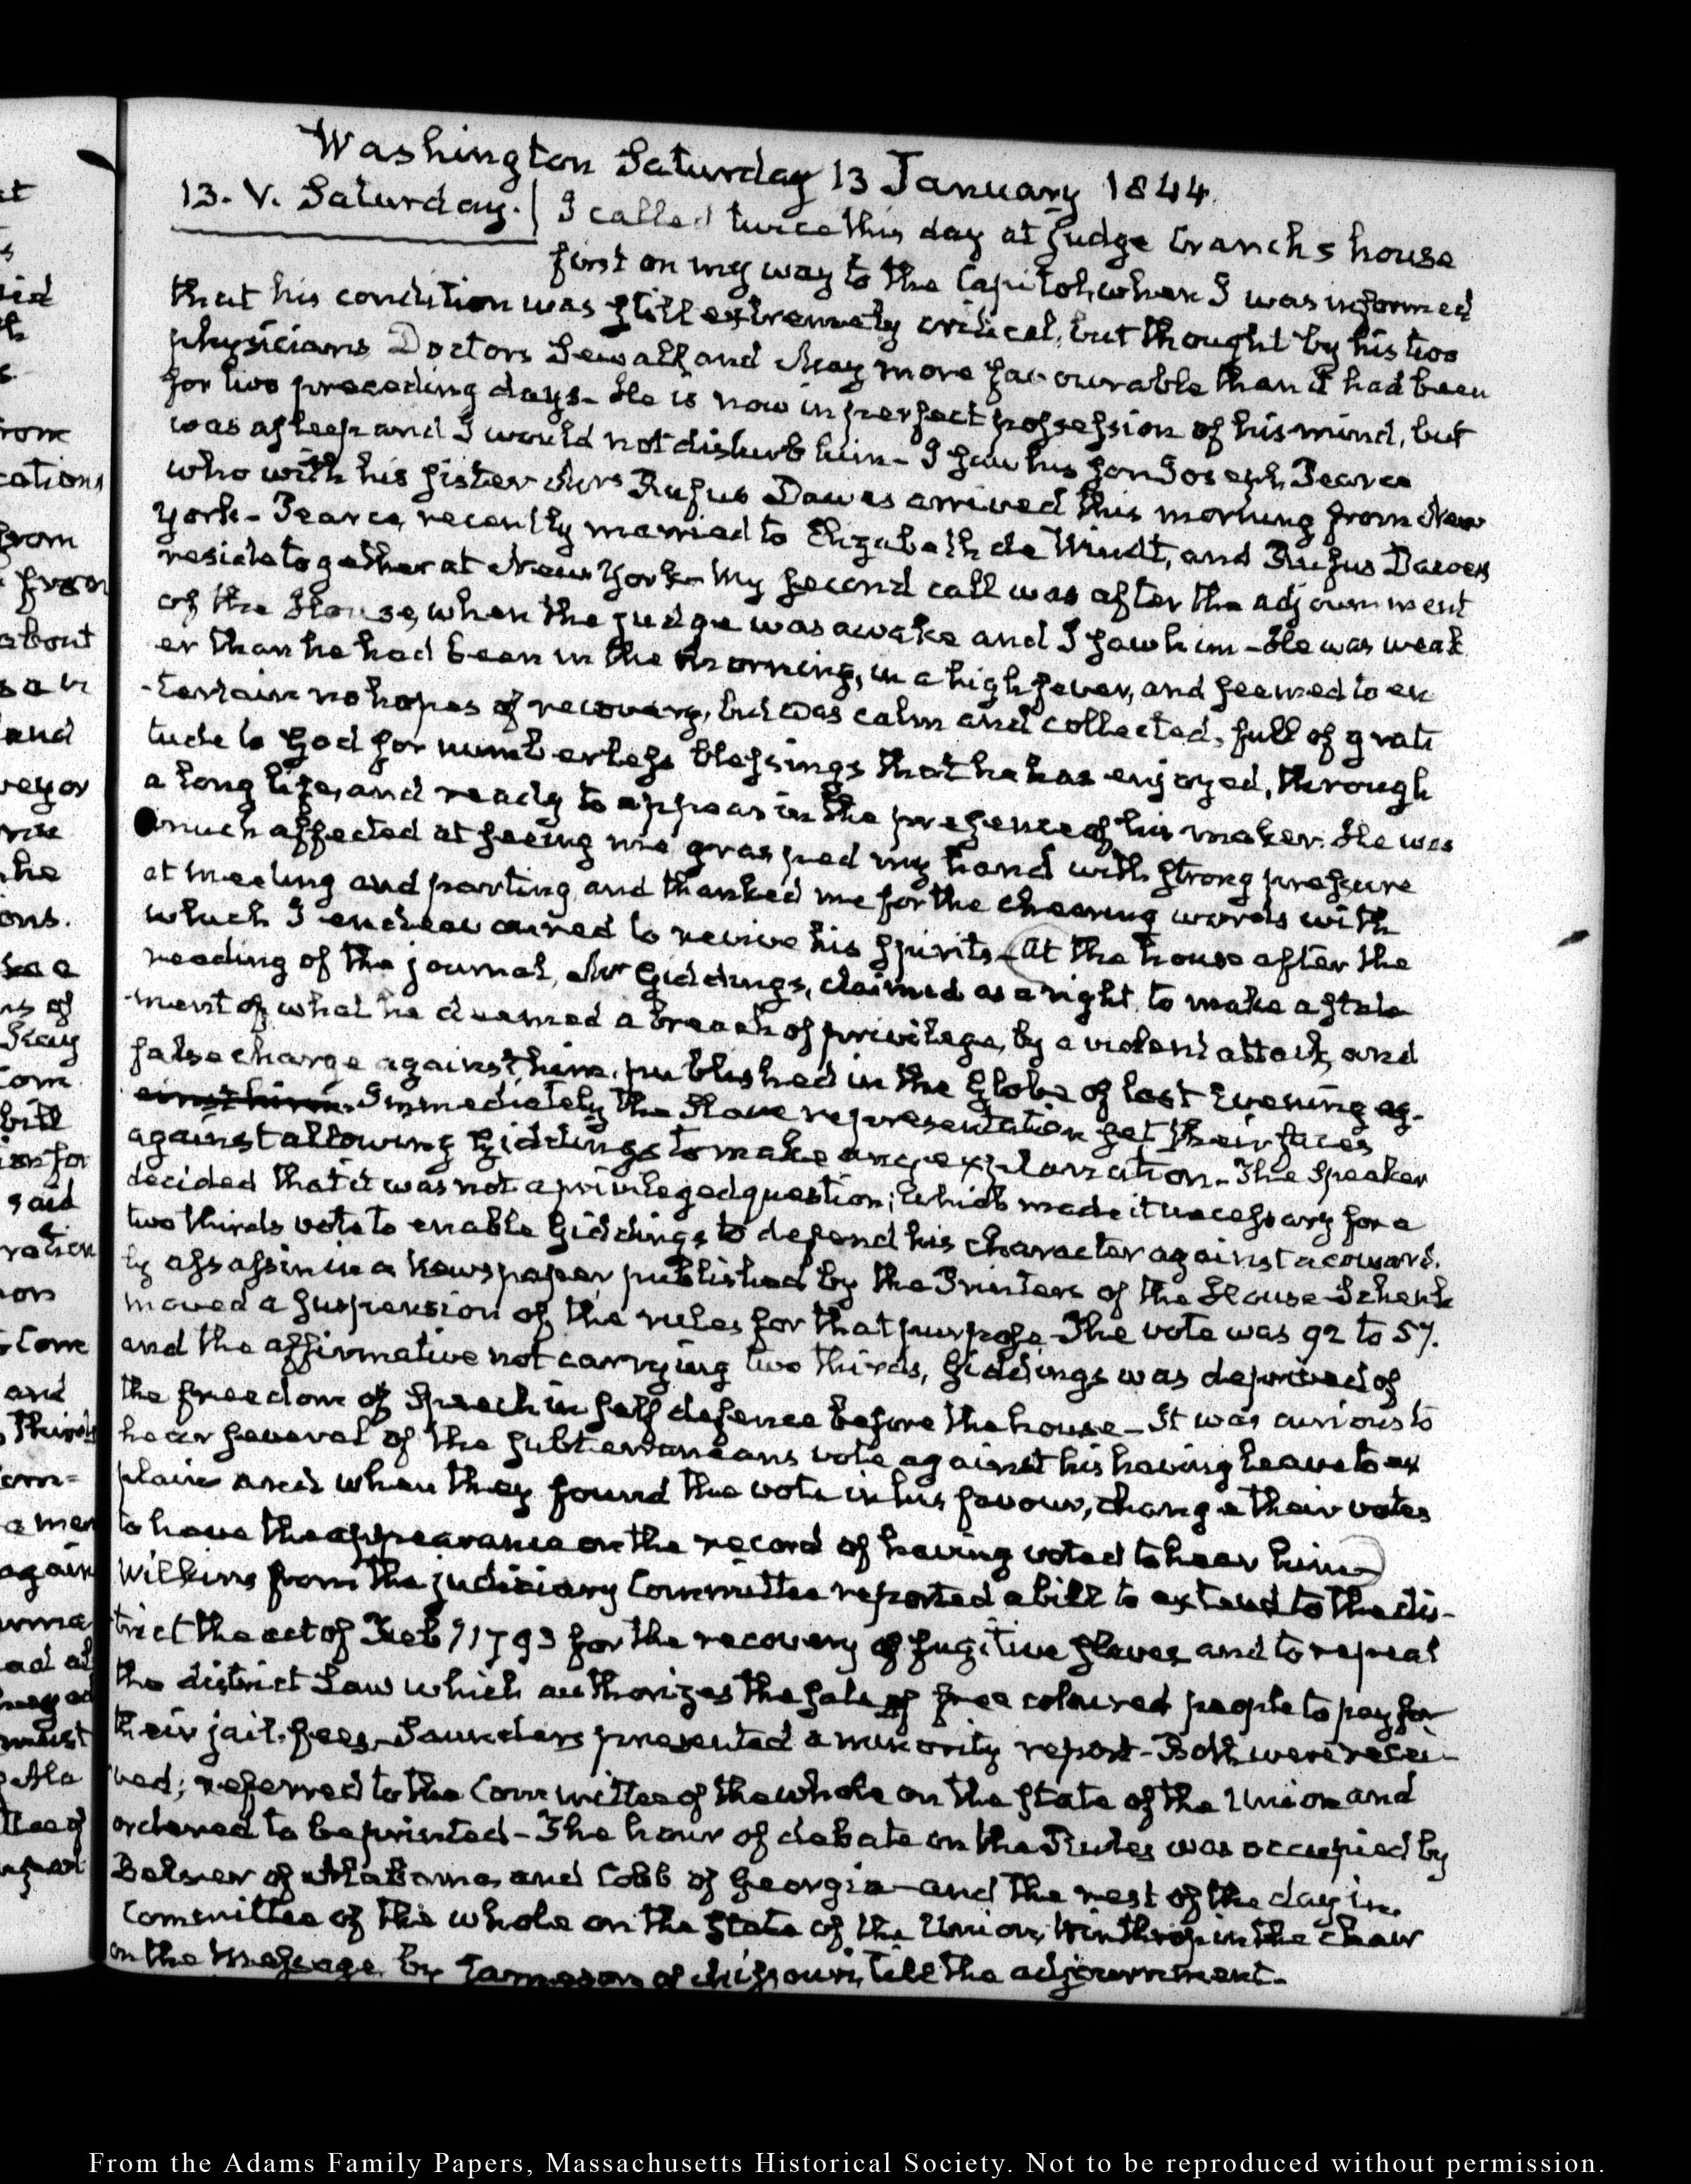 Washington Saturday 13 January 1844.
13. V. Saturday. I called twice this day at Judge Cranch's house
first on my way to the Capitol, when I was informed
that his condition was still extremely critical, but thought by his two
physicians Doctors Sewall and May more favourable than it had been
for two preceding days- He is now in perfect possession of his mind, but
was asleep and I would not disturb him- I saw his son Joseph Pearce
who with his sister Mrs Rufus Dawes arrived this morning from New
York- Pearce, recently married to Elizabeth de Windt, and Rufus Dawes
reside together at New York- My second call was after the adjournment
of the House, when the judge was awake and I saw him- He was weak
er than he had been in the morning, in a high fever, and seemed to en
-tertain no hopes of recovery, but was calm and collected, full of grati
tude to God for numberless blessings that he has enjoyed, through
a long life, and ready to appear in the presence of his maker. He was
much affected at seeing me grasped my hand with strong pressure
at meeting and parting, and thanked me for the cheering words with
which I endeavoured to revive his spirits- At the house after the
reading of the journal, Mr Giddings, claimed as a right, to make a state
-ment of what he deemed a breach of privilege, by a violent attack, and
false charge against him, published in the Globe of last Evening ag-
ainst him. Immediately the Slave representation set their faces
against allowing Giddings to make any explanation- The Speaker
decided that it was not a privileged question; which made it necessary for a
two thirds vote to enable Giddings to defend his character against a coward.
ly assassin in a Newspaper published by the Printers of the House- Schenck
moved a suspension of the rules for that purpose- The vote was 92 to 57.
and the affirmative not carrying two thirds, Giddings was deprived of
the freedom of Speech in self defence before the house- It was curious to
hear several of the subterraneans vote against his having leave to ex
plain and when they found the vote in his favour, change their votes
to have the appearance on the record of having voted to hear him-
Wilkins from the judiciary Committee reported a bill to extend to the dis-
trict the act of Feby 1793 for the recovery of fugitive slaves and to repeal
the district Law which authorizes the sale of free coloured people to pay for
their jail-fees- Saunders presented a minority report- Both were recei-
ved; referred to the Committee of the whole on the state of the Union and
ordered to be printed- The hour of debate on the Rules was occupied by
Belser of Alabama, and Cobb of Georgia- and the rest of the day in
Committee of the whole on the state of the Union, Winthrop in the chair
on the Message, by Jameson of Missouri, till the adjournment-
From the Adams Family Papers, Massachusetts Historical Society. Not to be reproduced without permission.